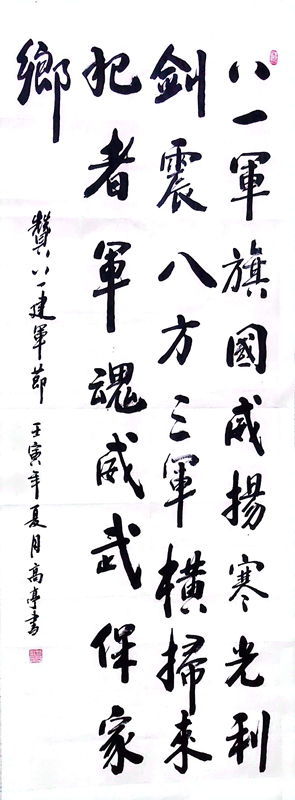 八一軍旗國威揚寒光利
劍震八方三軍橫掃來
犯者軍魂威武保家
鄉
贊八一建軍節 壬寅年夏月高亭書